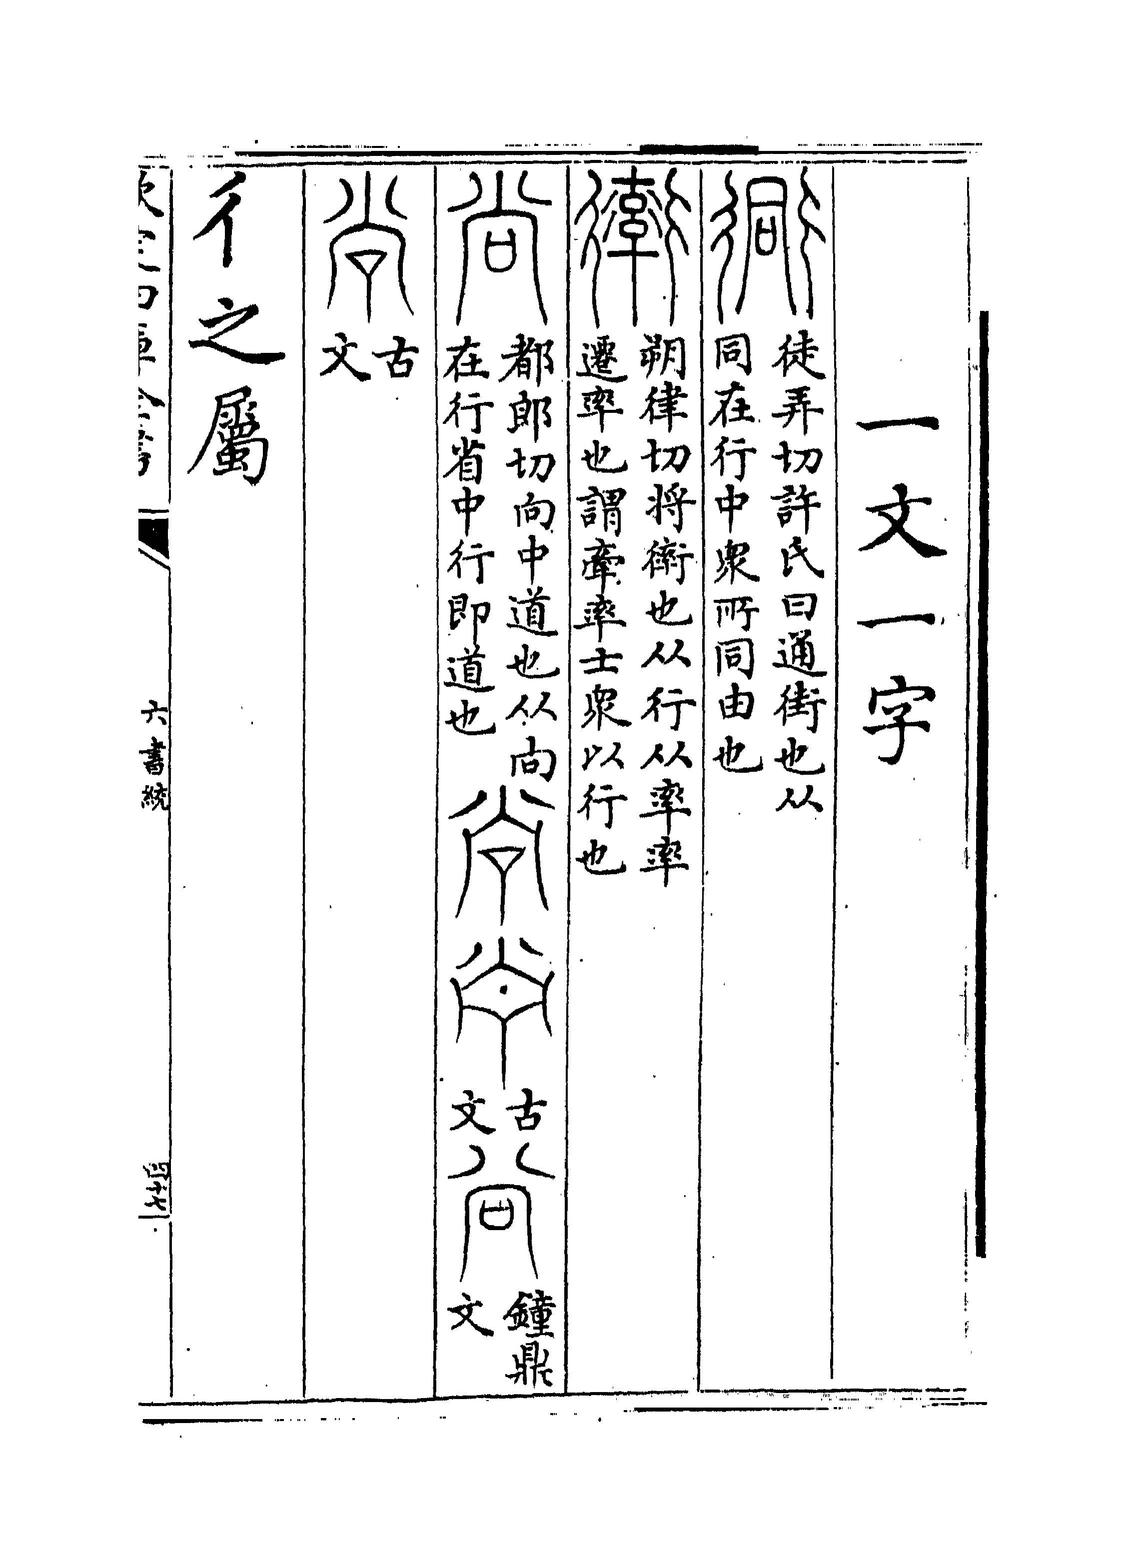 一文一字
衕 徒弄切許氏曰通街也从
同在行中衆所同由也
衛 朔律切将衛也从行从率率
遷率也謂牽率士衆以行也
尚 都郎切向中道也从向
在行省中行即道也
古文
鐘鼎文
古文
彳之屬
欽定四庫全書
六書統
四十七